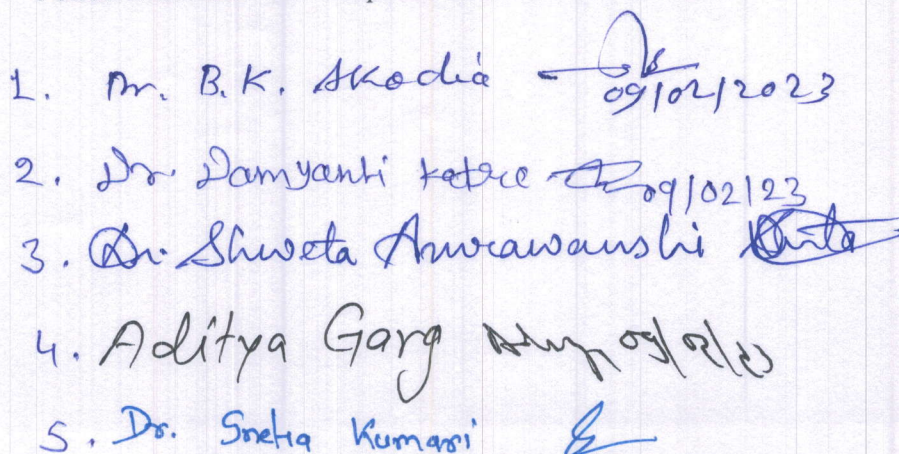 1. Dr. B.K. Akodia 09/02/2023
2. Dr. Damyanti Katre 09/02/23
3. Dr. Shweta Anurawanshi
4. Aditya Garg 09/02/23
5. Dr. Sneha Kumari